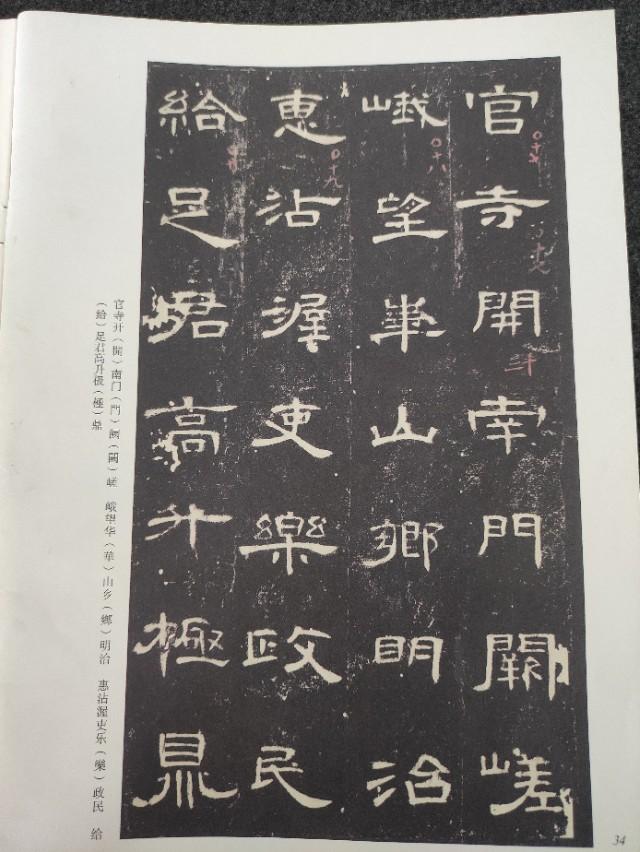 官寺開南門闕嵯
峨望華山鄉明治
惠沾渥吏樂政民
給足君高升極鼎
〇十七
〇十八
〇十九
官寺开（開）南门（門）阙（闕）嵯 峨望华（華）山乡（鄉）明治 惠沾渥吏乐（樂）政民 给
（給）足君高升极（極）鼎
34